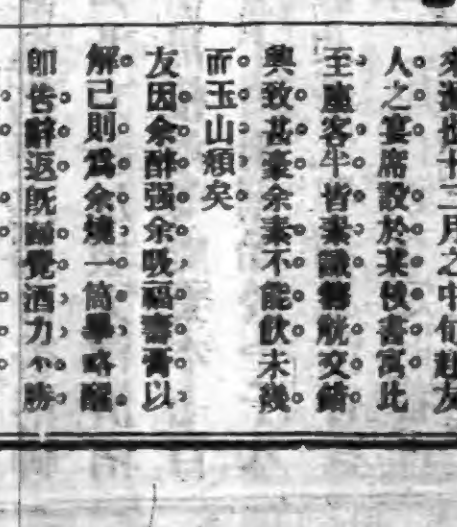 來滬於十二月之中旬赴友
人之宴席設於某校書寓比
至座客半皆素識觥交錯
興致甚豪余素不能飲未幾
而玉山頹矣
友因余醉强余吸福壽膏以
解己則爲余燒一筒畢略醒
卽告辭返既歸覺酒力不勝